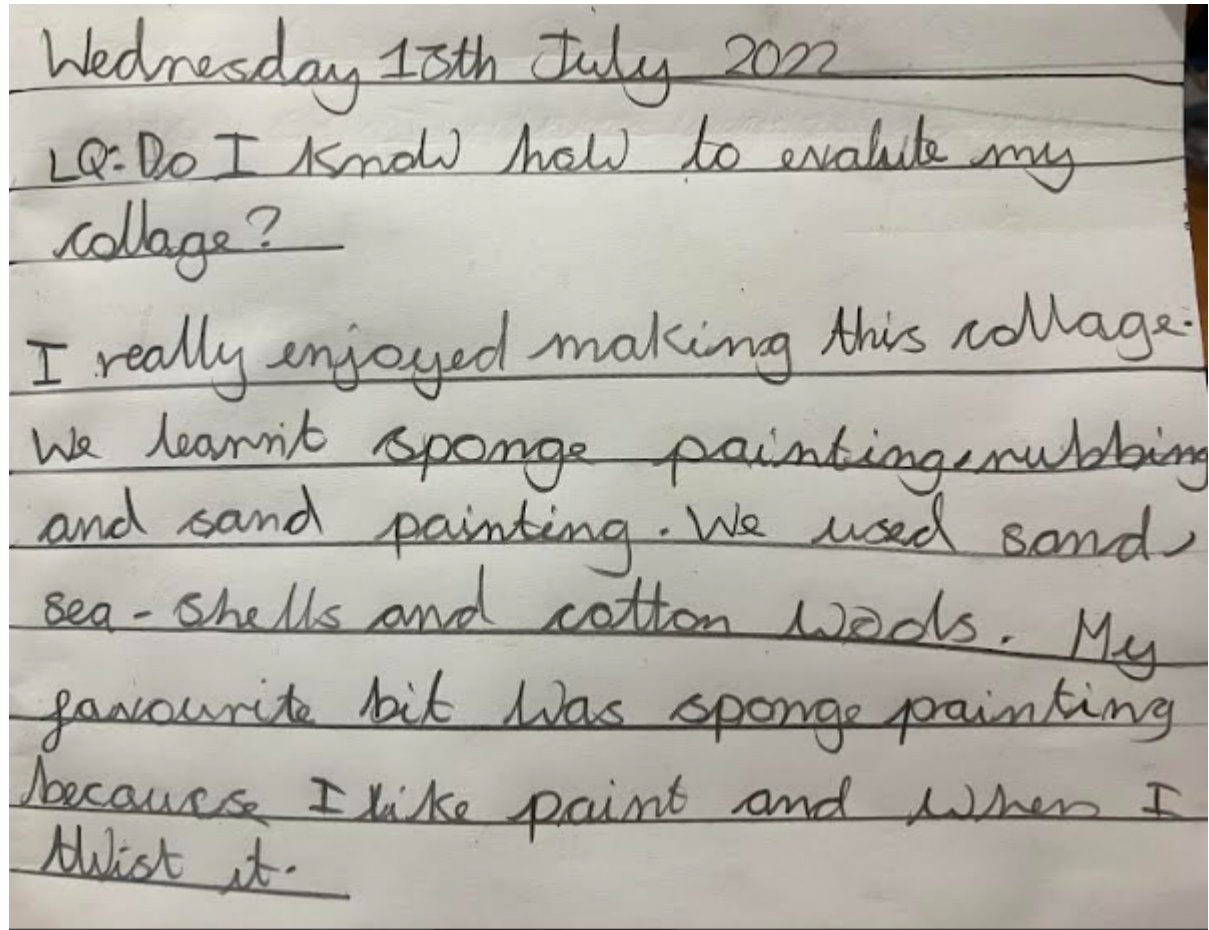 Wednesday 13th July 2022
LQ: Do I know how to evalute my
collage?
I really enjoyed making this collage.
We learnit sponge painting, rubbing
and sand painting. We used sand,
sea-shells and cotton wools. My
favourite bit was sponge painting
because I like paint and when I
twist it.